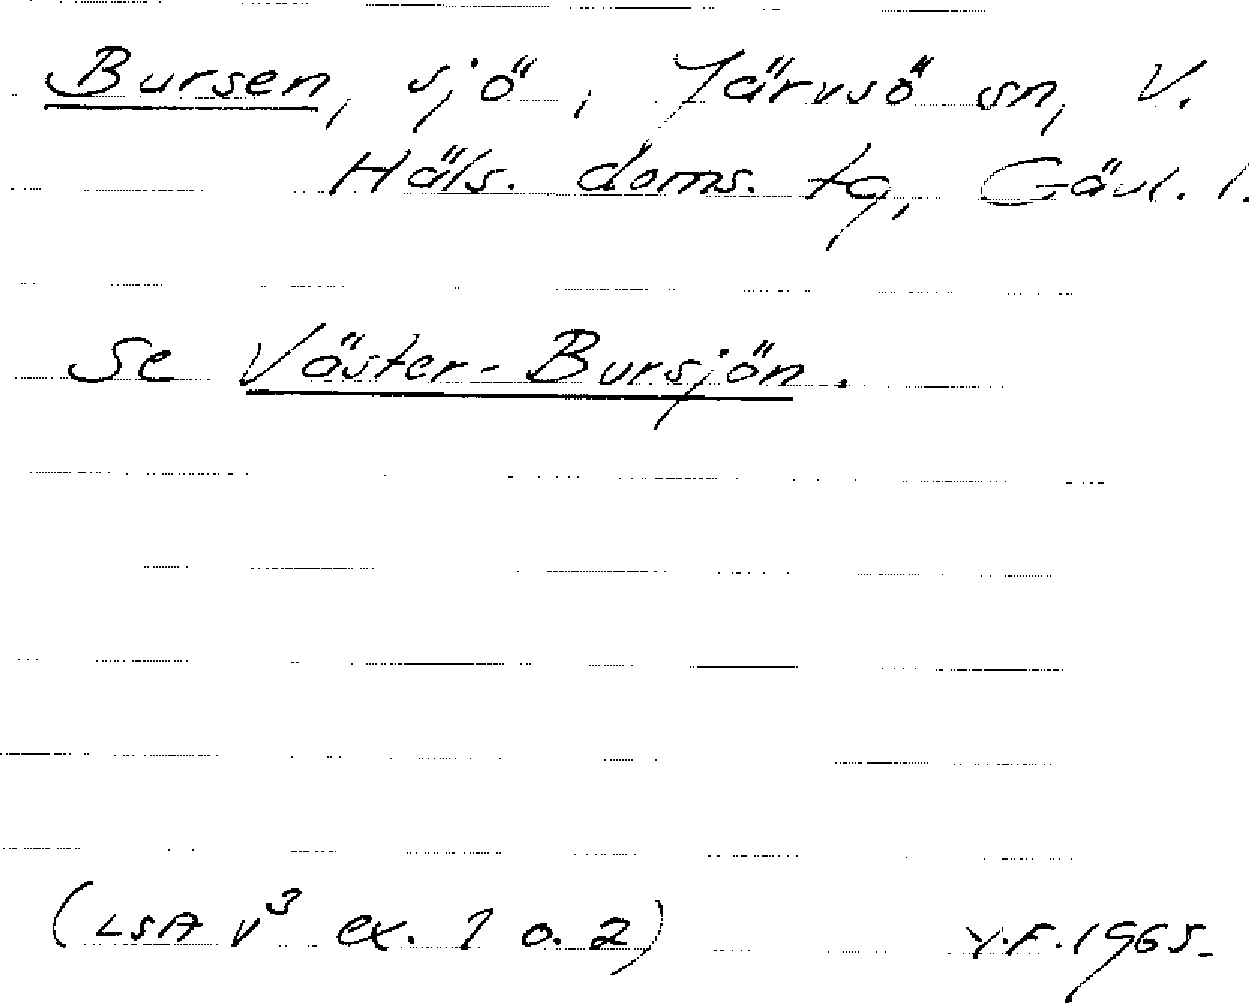 Bursen, sjö, Järvsö sn, V.
Häls. doms. tg, Gävl. l.
Se Väster-Bursjön.
(LSA v³ ex. 1 o. 2) Y.F. 1965.